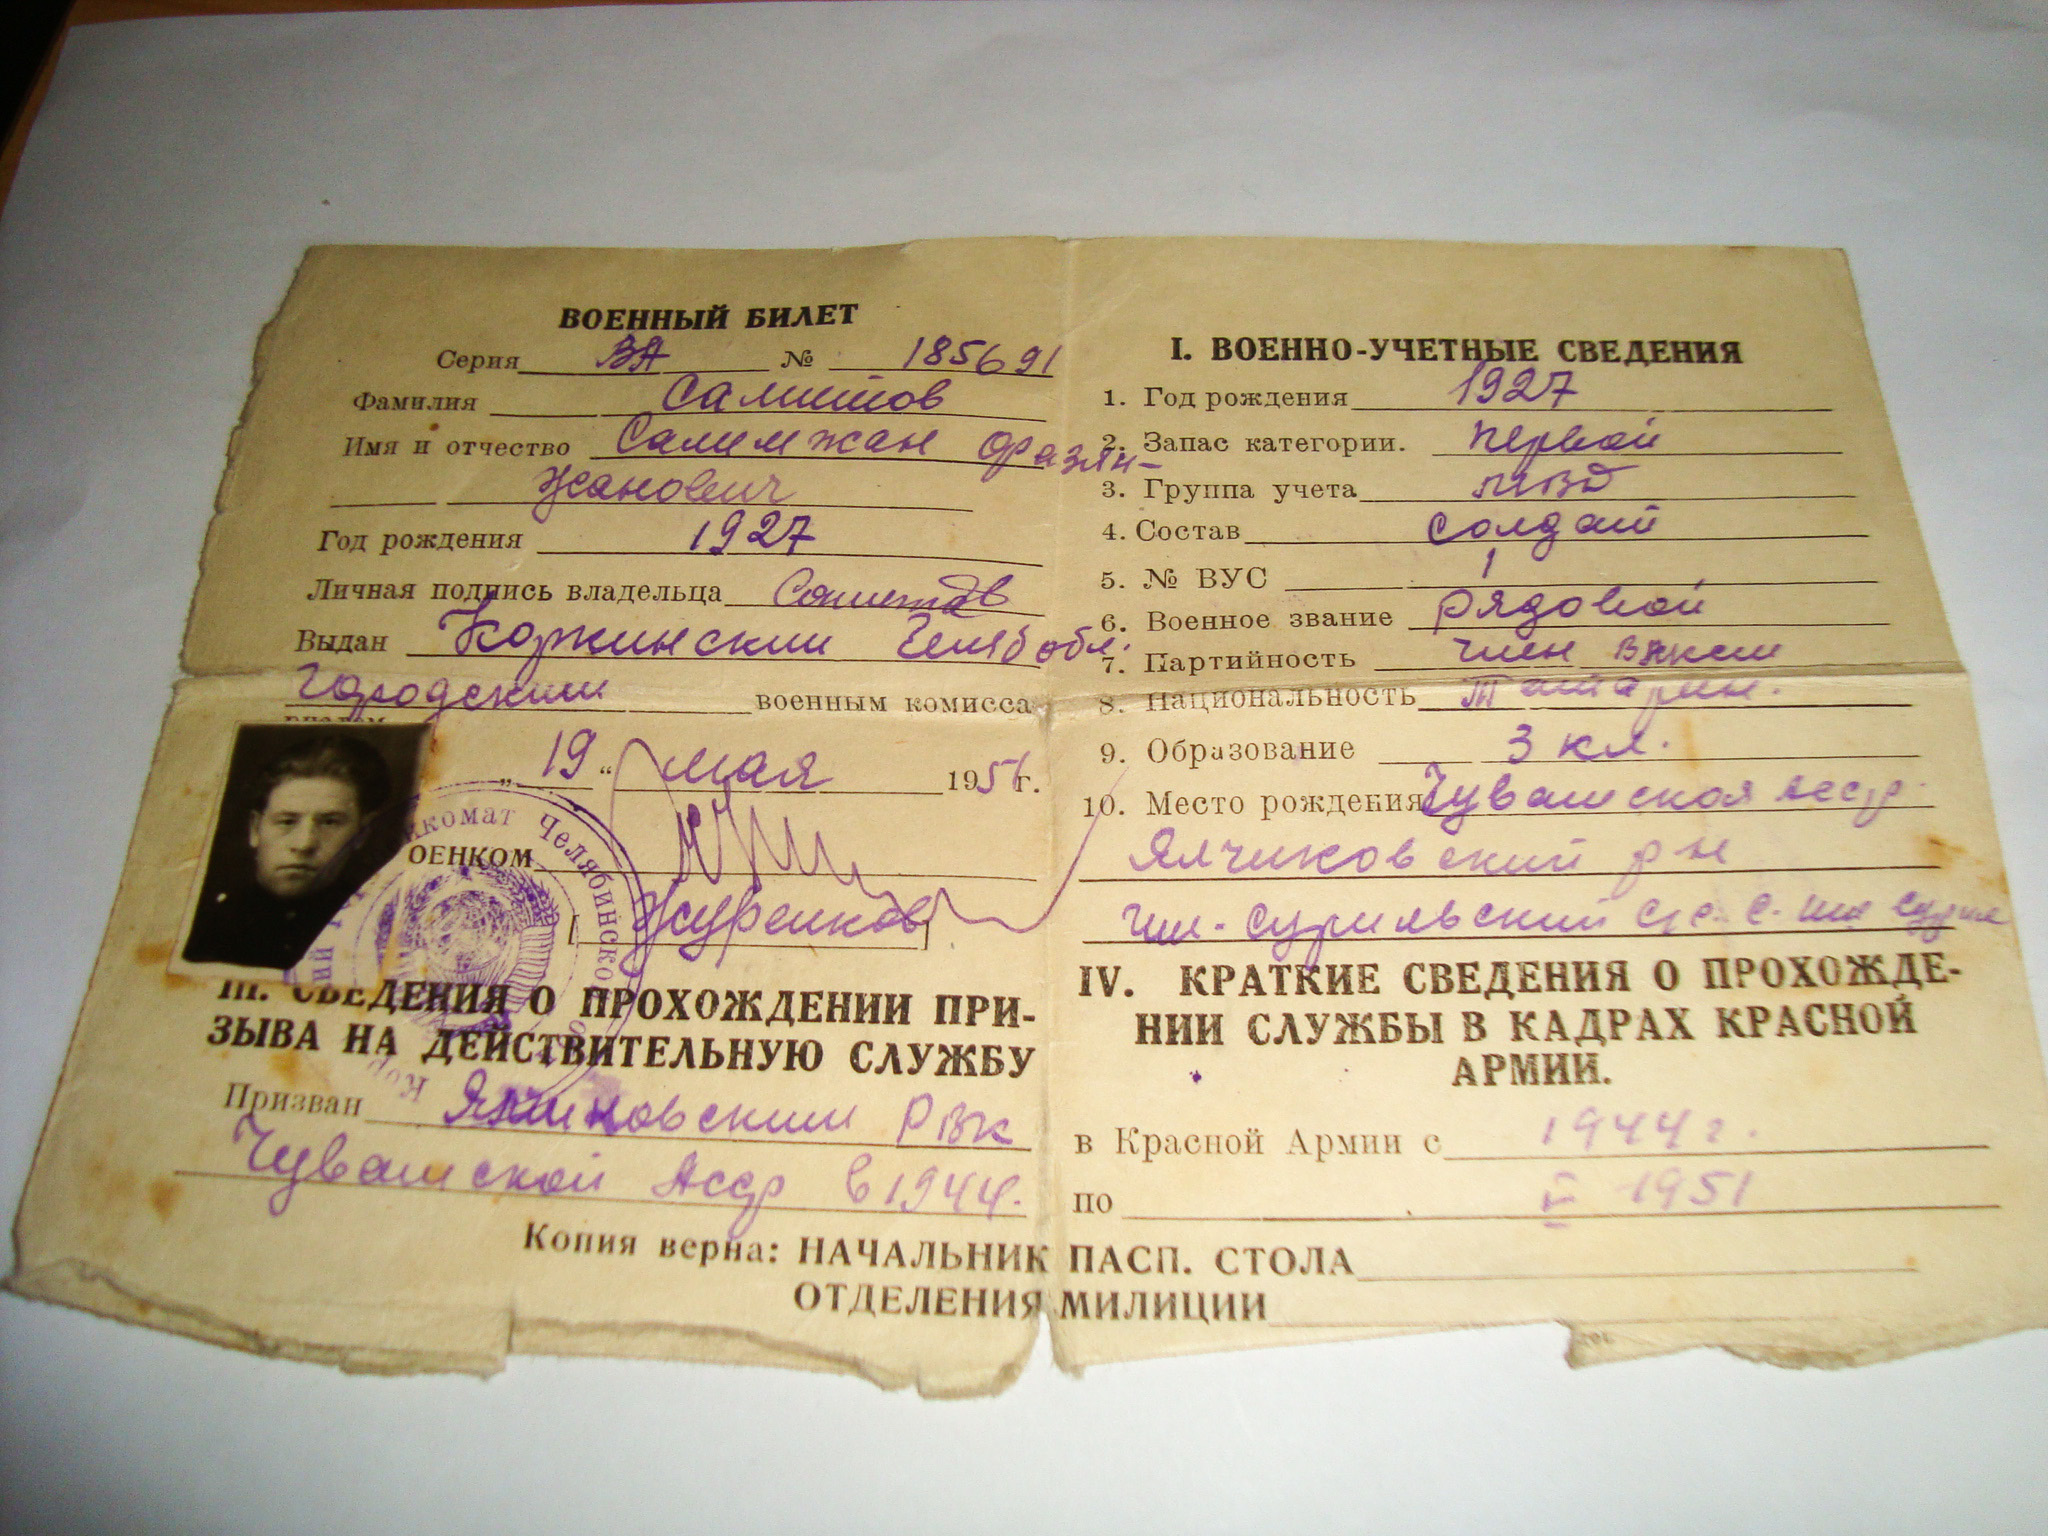 ВОЕННЫЙ БИЛЕТ
Серия ВА № 185691
Фамилия Самитов
Имя и отчество Салимжан Фазлян-
жанович
Год рождения 1927
Личная подпись владельца
Выдан Коркинским Челяб обл.
Городским военным комисса
„19“ мая 195 г.
ОЕНКОМ
III. СВЕДЕНИЯ О ПРОХОЖДЕНИИ ПРИ-
ЗЫВА НА ДЕЙСТВИТЕЛЬНУЮ СЛУЖБУ
Призван Ялчиковским РВК
Чувашской АССР в 1944.
I. ВОЕННО-УЧЕТНЫЕ СВЕДЕНИЯ
1. Год рождения 1927
2. Запас категории. первой
3. Группа учета МВД
4. Состав солдат
5. № ВУС 1
6. Военное звание рядовой
7. Партийность член ВЛКСМ
8. Национальность Татарин.
9. Образование 3 кл.
10. Место рождения Чувашская АССР
Ялчиковский р-н
IV. КРАТКИЕ СВЕДЕНИЯ О ПРОХОЖДЕ-
НИИ СЛУЖБЫ В КАДРАХ КРАСНОЙ
АРМИИ.
в Красной Армии с 1944 г.
по 1951
Копия верна: НАЧАЛЬНИК ПАСП. СТОЛА
ОТДЕЛЕНИЯ МИЛИЦИИ